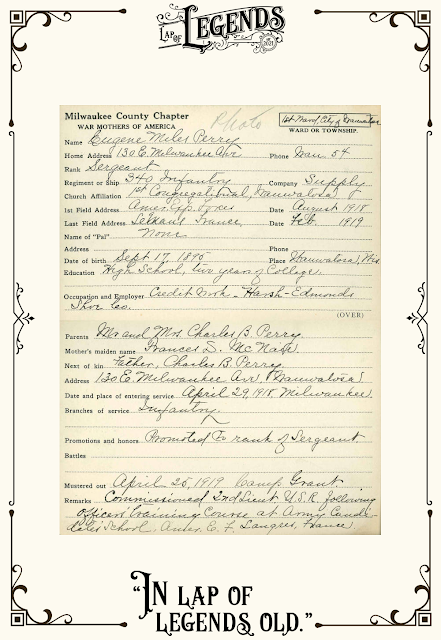 LAP OF LEGENDS
2021
Milwaukee County Chapter
WAR MOTHERS OF AMERICA
Photo
1st Ward, City of Wauwatosa
WARD OR TOWNSHIP.
Name Eugene Miles Perry
Home Address 130 E. Milwaukee Ave Phone Wau. 54
Rank Sergeant
Regiment or Ship 340 Infantry Company Supply
Church Affiliation 1st Congregational, Wauwatosa
1st Field Address Amer. Exp. Forces Date August 1918
Last Field Address France Date Feb. 1919
Name of "Pal" None
Address Phone
Date of birth Sept 17, 1895 Place Wauwatosa, Wis.
Education High School, two years of College.
Occupation and Employer Credit Work - Harsh-Edmonds
Shoe Co.
(OVER)
Parents Mr and Mrs. Charles B. Perry
Mother's maiden name Frances S. McNair
Next of kin Father, Charles B. Perry
Address 130 E. Milwaukee Ave, (Wauwatosa)
Date and place of entering service April 29, 1918, Milwaukee,
Branches of service Infantry
Promotions and honors Promoted To rank of Sergeant
Battles
Mustered out April 25, 1919 Camp Grant
Remarks Commissioned 2nd Lieut U.S.R. following
Officers' Training Course at Army Candi-
dates School, Amer. E. F. Langres, France
"IN LAP OF
LEGENDS OLD."